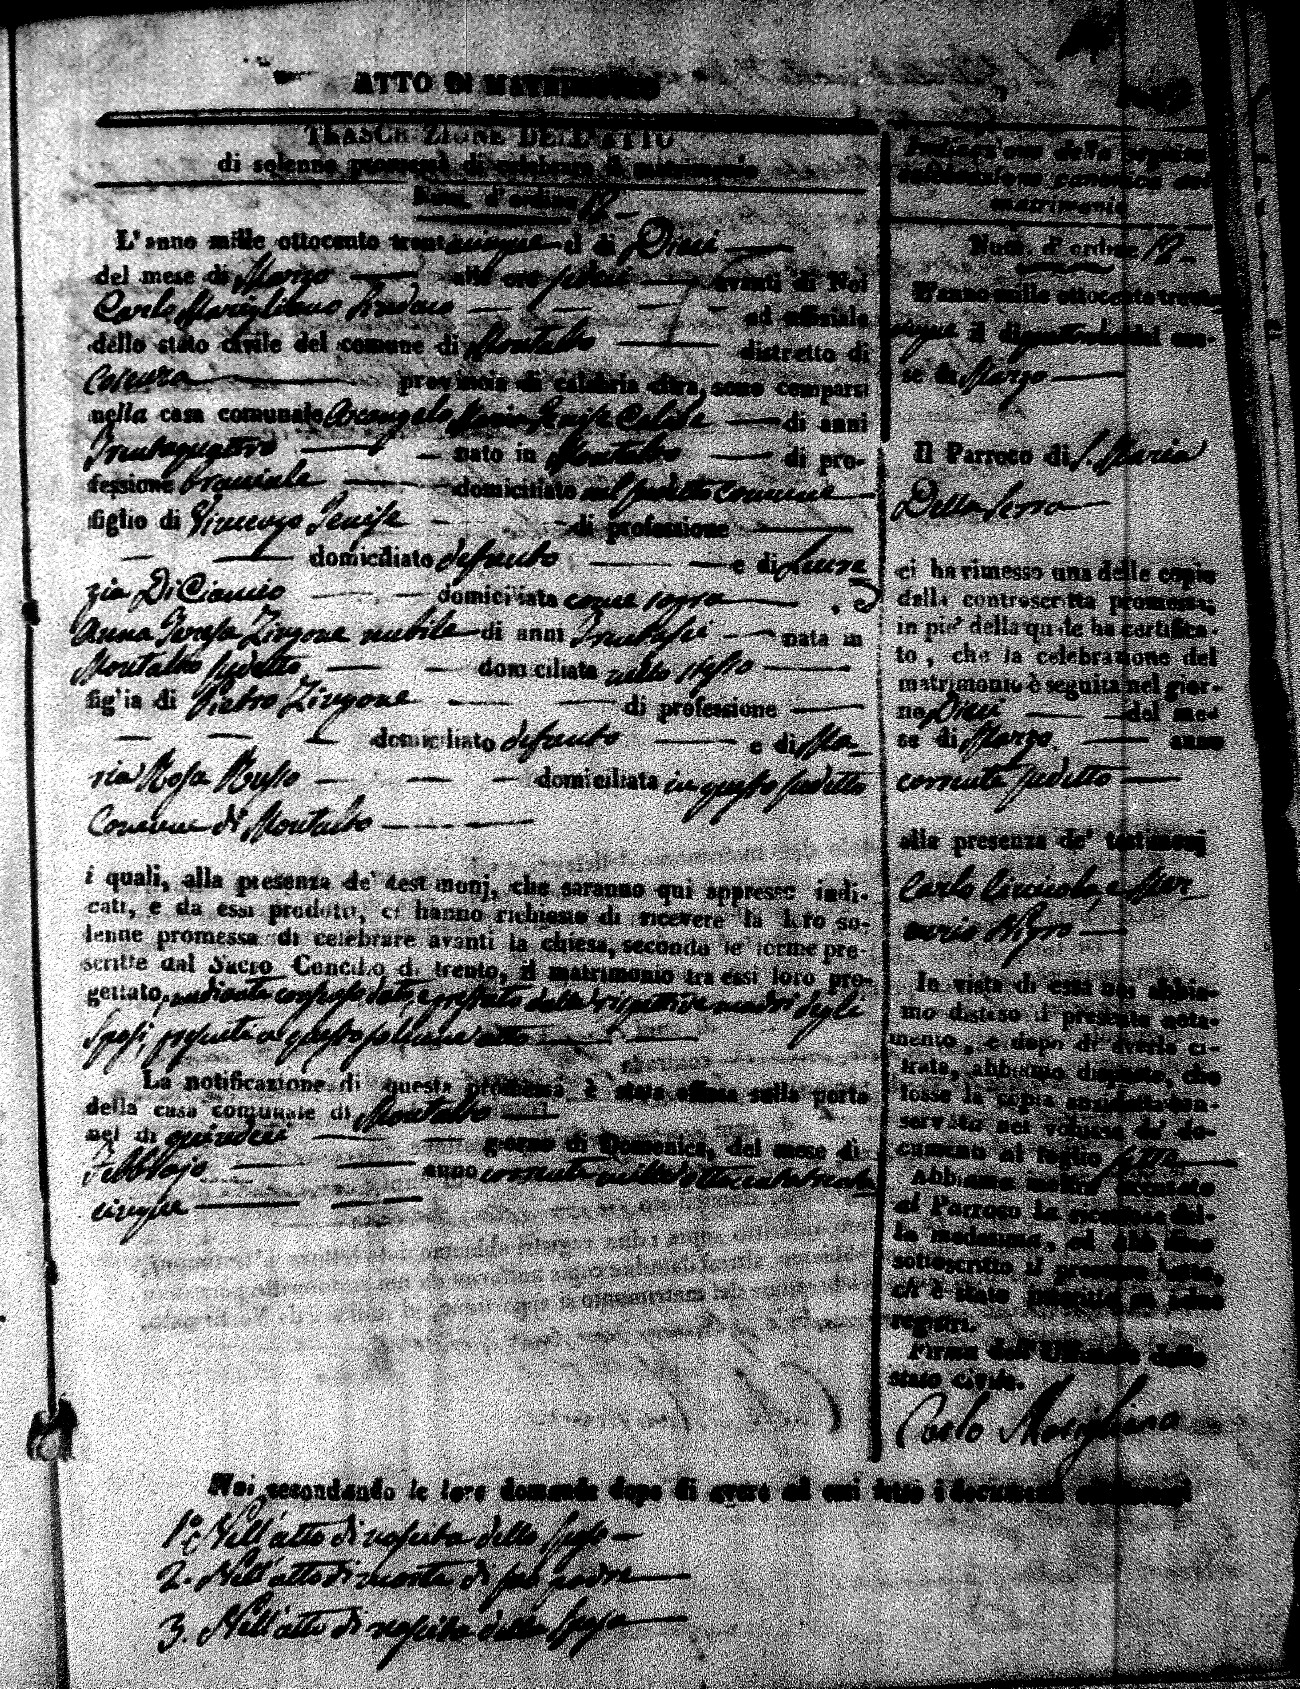 ATTO DI MATRIMONIO
TRASCRIZIONE DELL'ATTO
di solenne promessa di celebrare il matrimonio
Num. d'ordine 12
L'anno mille ottocento trentacinque il dì Dieci
del mese di Marzo alle ore avanti di Noi
Carlo Marigliano Sindaco ed uffiziale
dello stato civile del comune di Montalto distretto di
Cosenza provincia di calabria citra, sono comparsi
nella casa comunale Arcangelo Maria di anni
Trentaquattro nato in Montalto di pro-
fessione Bracciale domiciliato nel suddetto comune
figlio di Vincenzo di professione
domiciliato defunto e di Lucre
zia Di Cianno domiciliata come sopra , e
Anna Teresa Zingone nubile di anni Trentasei nata in
Montalto suddetto domiciliata nello stesso
figlia di Pietro Zingone di professione
domiciliato defunto e di Ma
ria Rosa Russo domiciliata in questo suddetto
Comune di Montalto
i quali, alla presenza de' testimonj, che saranno qui appresso indi-
cati, e da essi prodotti, ci hanno richiesto di ricevere la loro so-
lenne promessa di celebrare avanti la chiesa, secondo le forme pre-
scritte dal Sacro Concilio di trento, il matrimonio tra essi loro pro-
gettato, mediante consenso dato, e prestato dalle rispettive madri degli
Sposi, presenti a questo solenne atto
La notificazione di questa promessa è stata affissa sulla porta
della casa comunale di Montalto
nel dì quindeci giorno di Domenica, del mese di
Febbrajo anno corrente mille ottocento trenta
cinque
Noi, secondando le loro domande dopo di avere ad essi letto i documenti
1.° Dell'atto di nascita dello Sposo
2. Dell'atto di morte di suo padre
3. Dell'atto di nascita della Sposa
Indicazione della seguita
celebrazione canonica del
matrimonio
Num. d'ordine 12
L'anno mille ottocento trenta
cinque il dì quattordici del me-
se di Marzo
Il Parroco di S. Maria
Della Serra
ci ha rimesso una delle copie
della controscritta promessa,
in piè della quale ha certifica-
to, che la celebrazione del
matrimonio è seguita nel gior-
no Dieci del me-
se di Marzo anno
corrente suddetto
alla presenza de' testimonj
Carlo
In vista di essa noi abbia-
mo disteso il presente nota-
mento, e dopo di averla ci-
frata, abbiamo disposto, che
fosse la copia anzidetta con-
servata nel volume de' do-
cumenti al foglio sette
Abbiamo inoltre accusato
al Parroco la ricezione del-
la medesima, ed abbiamo
sottoscritto il presente atto,
ch'è stato
registri.
Firma dell'Uffiziale dello
stato civile.
Carlo Marigliano